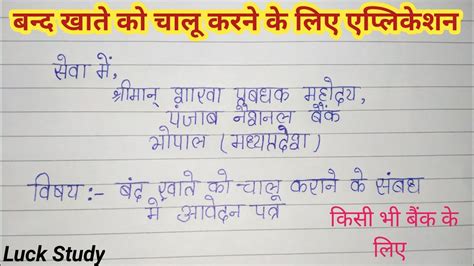 बन्द खाते को चालू करने के लिए एप्लिकेशन
सेवा में,
श्रीमान् शाखा प्रबधक महोदय,
पंजाब नैशनल बैंक
भोपाल (मध्यप्रदेश)
विषय :- बंद खाते को चालू कराने के संबध
में आवेदन पत्र
किसी भी बैंक के
लिए
Luck Study